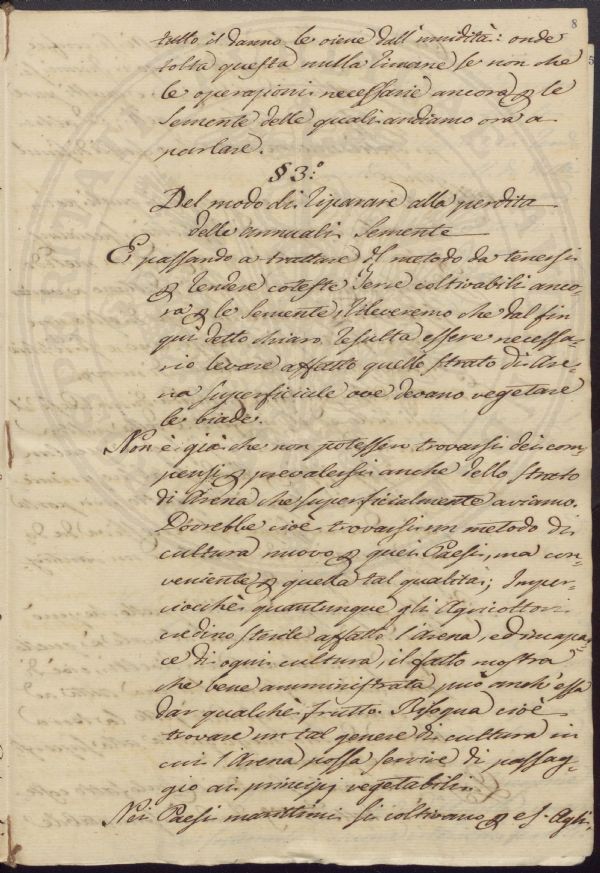 8
5
tutto il danno le viene dall'umidità: onde
tolta questa nulla rimane se non che
le operazioni necessarie ancora p le
Semente delle quali andiamo ora a
parlare.
§ 3.°
Del modo di riparare alla perdita
delle annuali Semente
E passando a trattare il metodo da tenersi
p rendere coteste Terre coltivabili anco-
ra p le Semente, rileveremo che dal fin
qui detto chiaro resulta essere necessa-
rio levare affatto quello strato di Are-
na superficiale ove devano vegetare
le biade.
Non è già che non potessero trovarsi dei com-
pensi p prevalersi anche dello strato
di Arena che superficialmente aviamo.
Dovrebbe cioè trovarsi un metodo di
cultura nuovo p quei Paesi, ma con-
veniente p quella tal qualità; Imper-
ciocchè quantunque gli Agricoltori
credino sterile affatto l'Arena, ed incapa-
ce di ogni cultura, il fatto mostra
che bene amministrata può anch'essa
dar qualche frutto. Bisogna cioè
trovare un tal genere di cultura in
cui l'Arena possa servire di passag-
gio ai principj vegetabili.
Nei Paesi marittimi si coltivano p es. Agli-